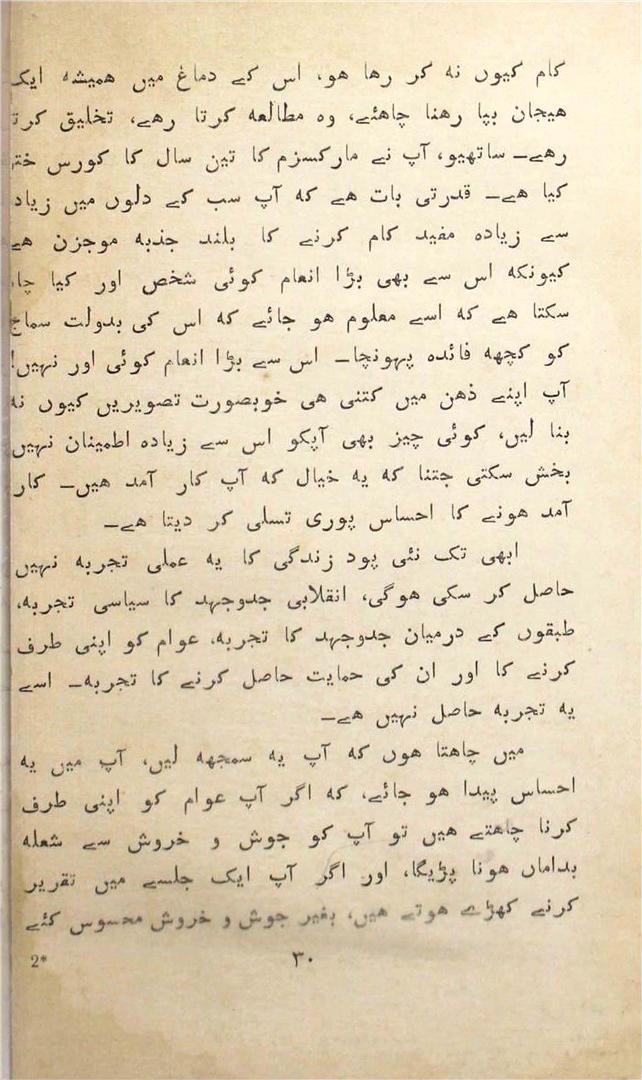 کام کیوں نہ کر رہا ہو، اس کے دماغ میں ہمیشہ ایک
ہیجان بپا رہنا چاہئے، وہ مطالعہ کرتا رہے، تخلیق کرتا
رہے۔ ساتھیو، آپ نے مارکسزم کا تین سال کا کورس ختم
کیا ہے۔ قدرتی بات ہے کہ آپ سب کے دلوں میں زیادہ
سے زیادہ مفید کام کرنے کا بلند جذبہ موجزن ہے
کیونکہ اس سے بھی بڑا انعام کوئی شخص اور کیا چاہ
سکتا ہے کہ اسے معلوم ہو جائے کہ اس کی بدولت سماج
کو کچھہ فائدہ پہونچا۔ اس سے بڑا انعام کوئی اور نہیں!
آپ اپنے ذہن میں کتنی ہی خوبصورت تصویریں کیوں نہ
بنا لیں، کوئی چیز بھی آپکو اس سے زیادہ اطمینان نہیں
بخش سکتی جتنا کہ یہ خیال کہ آپ کار آمد ہیں۔ کار
آمد ہونے کا احساس پوری تسلی کر دیتا ہے۔
ابھی تک نئی پود زندگی کا یہ عملی تجربہ نہیں
حاصل کر سکی ہوگی، انقلابی جدوجہد کا سیاسی تجربہ،
طبقوں کے درمیان جدوجہد کا تجربہ، عوام کو اپنی طرف
کرنے کا اور ان کی حمایت حاصل کرنے کا تجربہ۔ اسے
یہ تجربہ حاصل نہیں ہے۔
میں چاہتا ہوں کہ آپ یہ سمجھہ لیں، آپ میں یہ
احساس پیدا ہو جائے، کہ اگر آپ عوام کو اپنی طرف
کرنا چاہتے ہیں تو آپ کو جوش و خروش سے شعلہ
بداماں ہونا پڑیگا، اور اگر آپ ایک جلسے میں تقریر
کرنے کھڑے ہوتے ہیں، بغیر جوش و خروش محسوس کئے
2* ۳۰